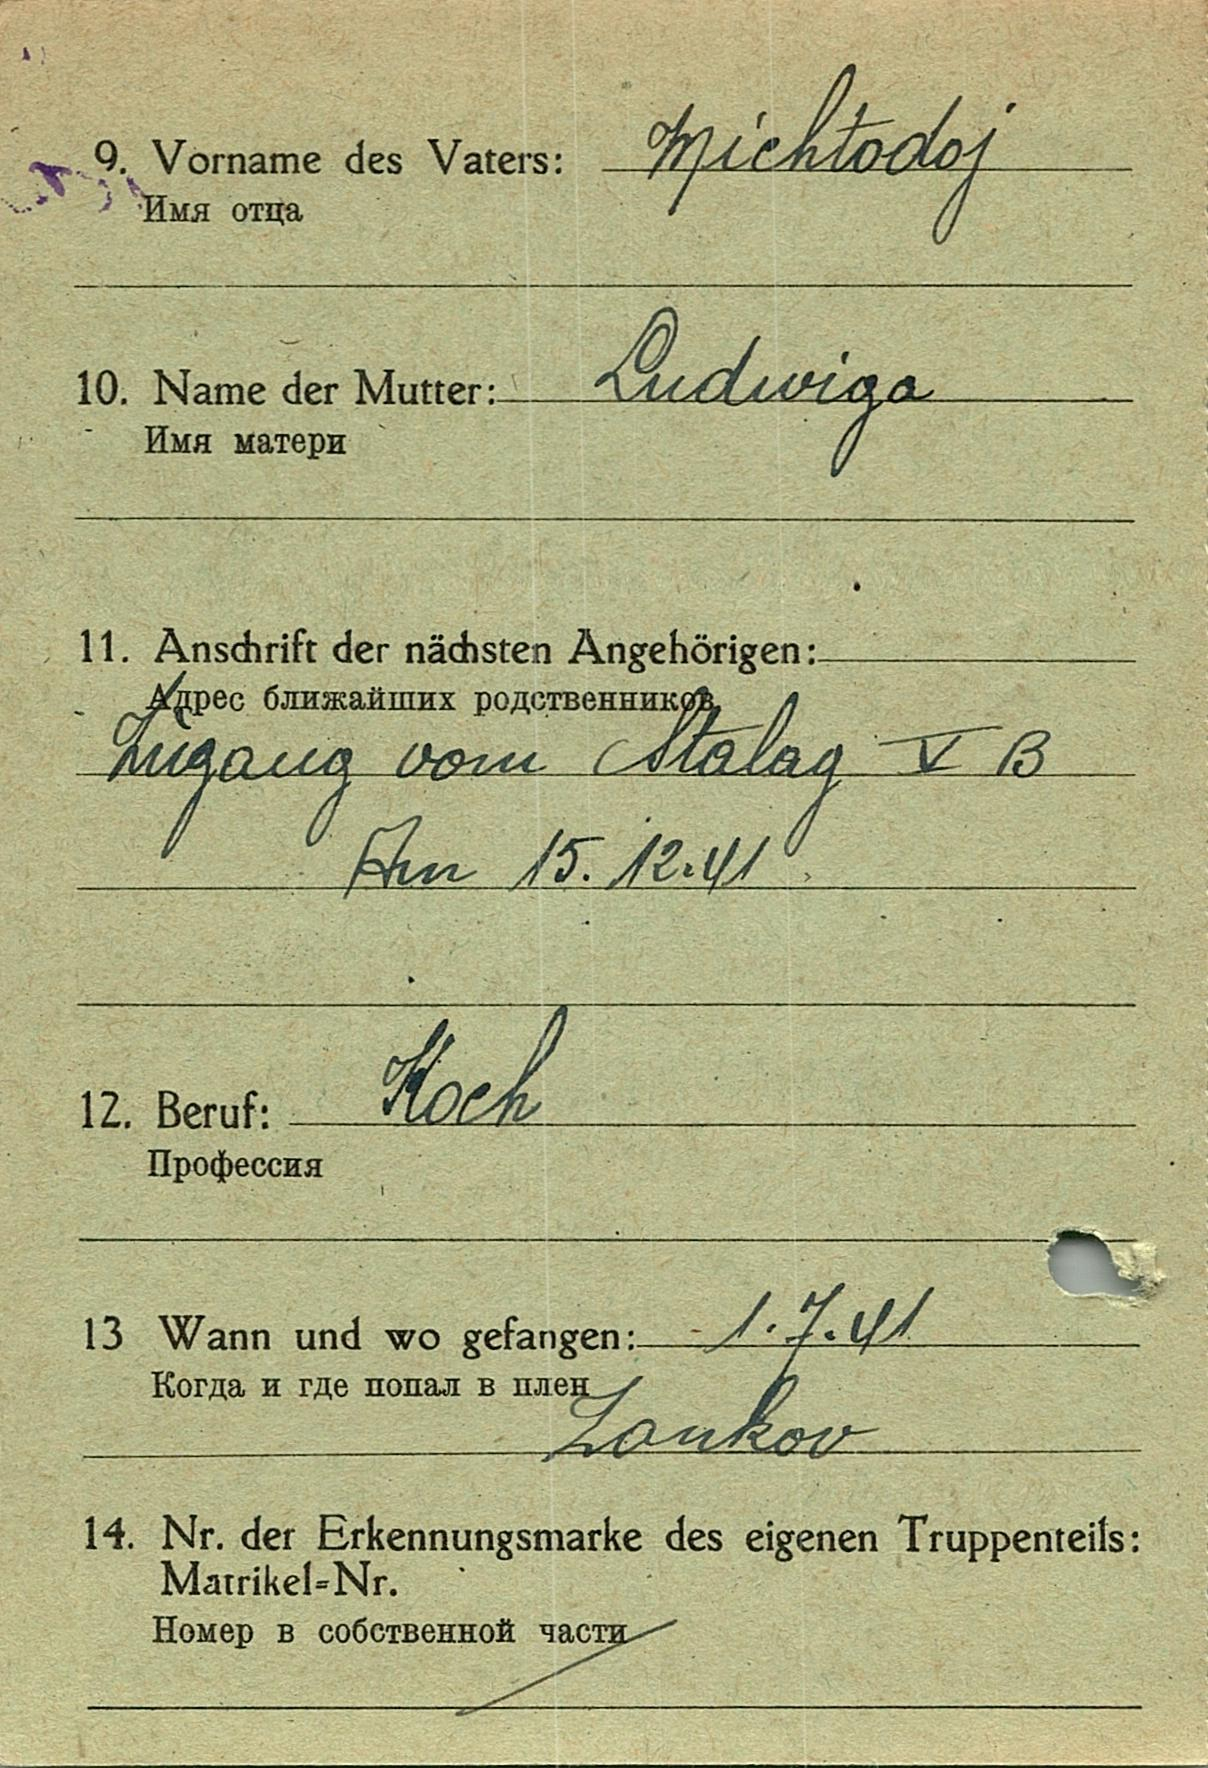 9. Vorname des Vaters: Michtodoj
Имя отца
10. Name der Mutter: Ludwiga
Имя матери
11. Anschrift der nächsten Angehörigen:
Адрес ближайших родственников
Zugang vom Stalag V B
Am 15.12.41
12. Beruf: Koch
Профессия
13 Wann und wo gefangen: 1.7.41
Когда и где попал в плен
Zankov
14. Nr. der Erkennungsmarke des eigenen Truppenteils:
Matrikel=Nr.
Номер в собственной части